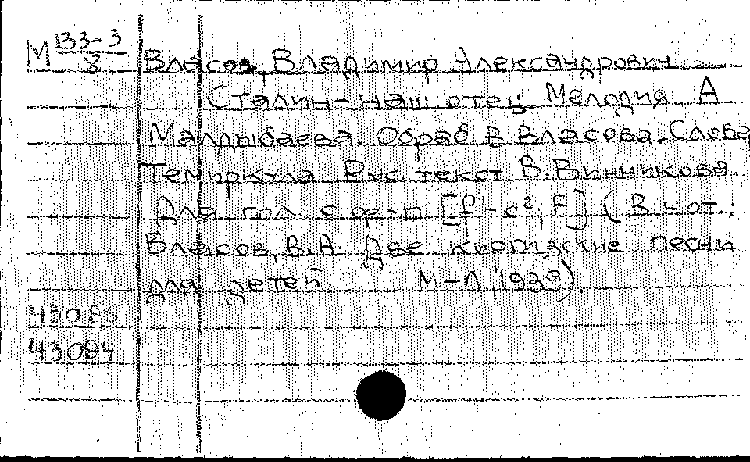 М 133-3/8
Власов, Владимир Александрович
Сталин - наш отец Мелодия А
Малдыбаева. Обраб. В Власова. Слова
Темиркула Рус. текст В. Винникова
Для гол. с ф-п [f¹-c², F] (В нот.:
Власов, В.А. Две киргизские песни
для детей М-Л 1939)
43084